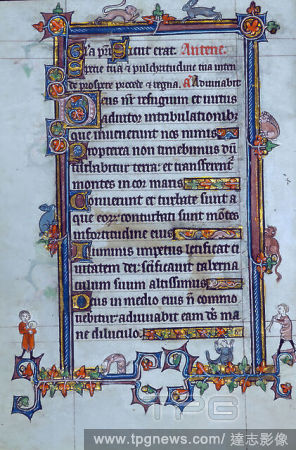 G'la p̄ri Sicut erat. Antene.
Specie tua & pulchritudine tua inten
de prospere procede & regna. A. Adiuuabit
Deus n̄r refugium et uirtus
adiutor in tribulationib;
que inuenerunt nos nimis
Propterea non timebimus dū
turbabitur terra: et transferent̄
montes in cor maris
Sonuerunt et turbate sunt a
que eor; conturbati sunt mōtes
in fortitudine eius
Fluminis impetus letificat ci
uitatem dei: sc̄ificauit taberna
culum suum altissimus
Deus in medio eius n̄ commo
uebitur: adiuuabit eam d's̄ ma
ne diluculo
TPG
www.tpgnews.com/達志影像